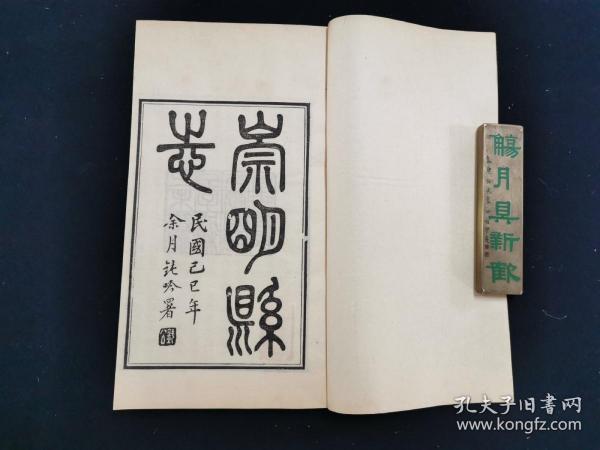 崇明縣
志
民國己巳年
余月詵吟署
觴月具新歡
孔夫子旧书网
www.kongfz.com